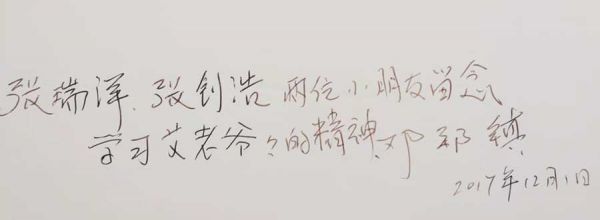 张瑞洋、张创浩 两位小朋友留念
学习艾老爷々的精神 邓
2017年12月1日